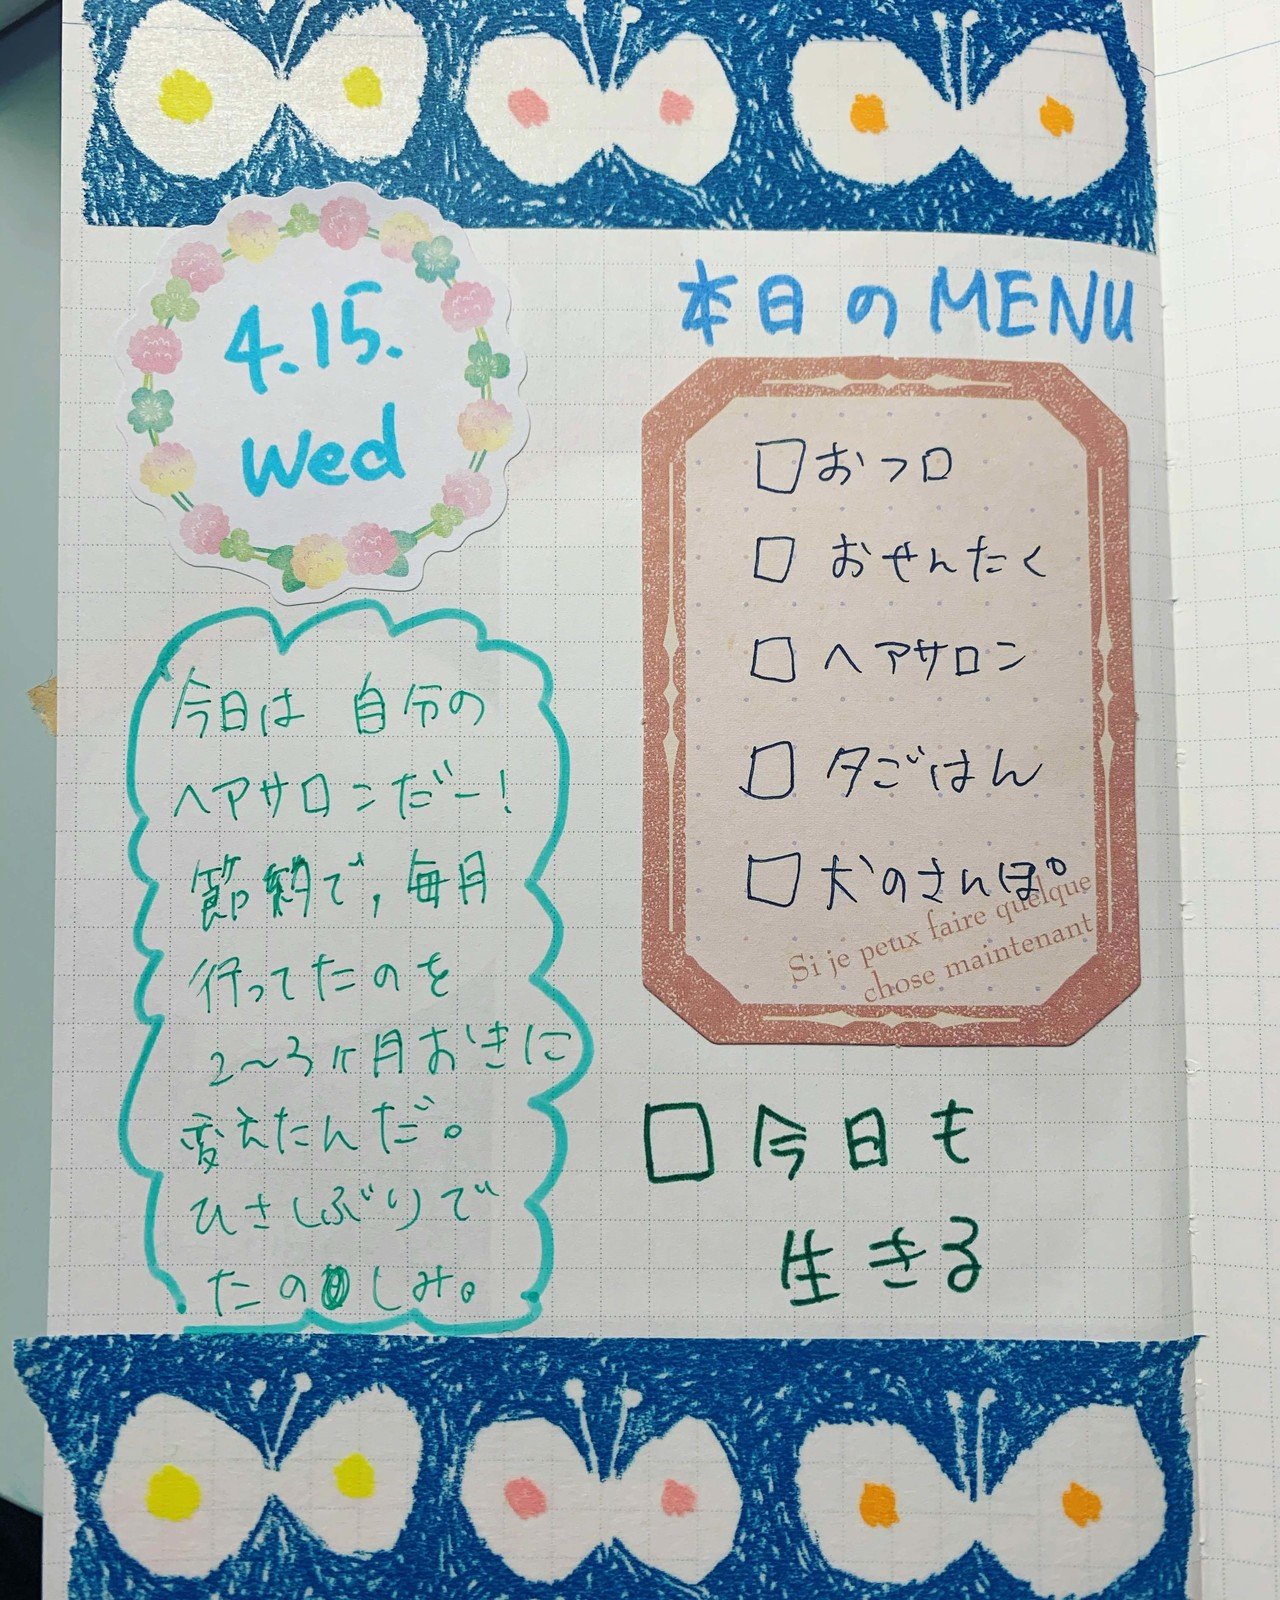 4.15.
Wed
本日のMENU
□おフロ
□おせんたく
□ヘアサロン
□夕ごはん
□犬のさんぽ。
Si je peux faire quelque
chose maintenant
今日は 自分の
ヘアサロンだー!
節約で、毎月
行ってたのを
2〜3ヶ月おきに
変えたんだ。
ひさしぶりで
たのしみ。
□今日も
生きる